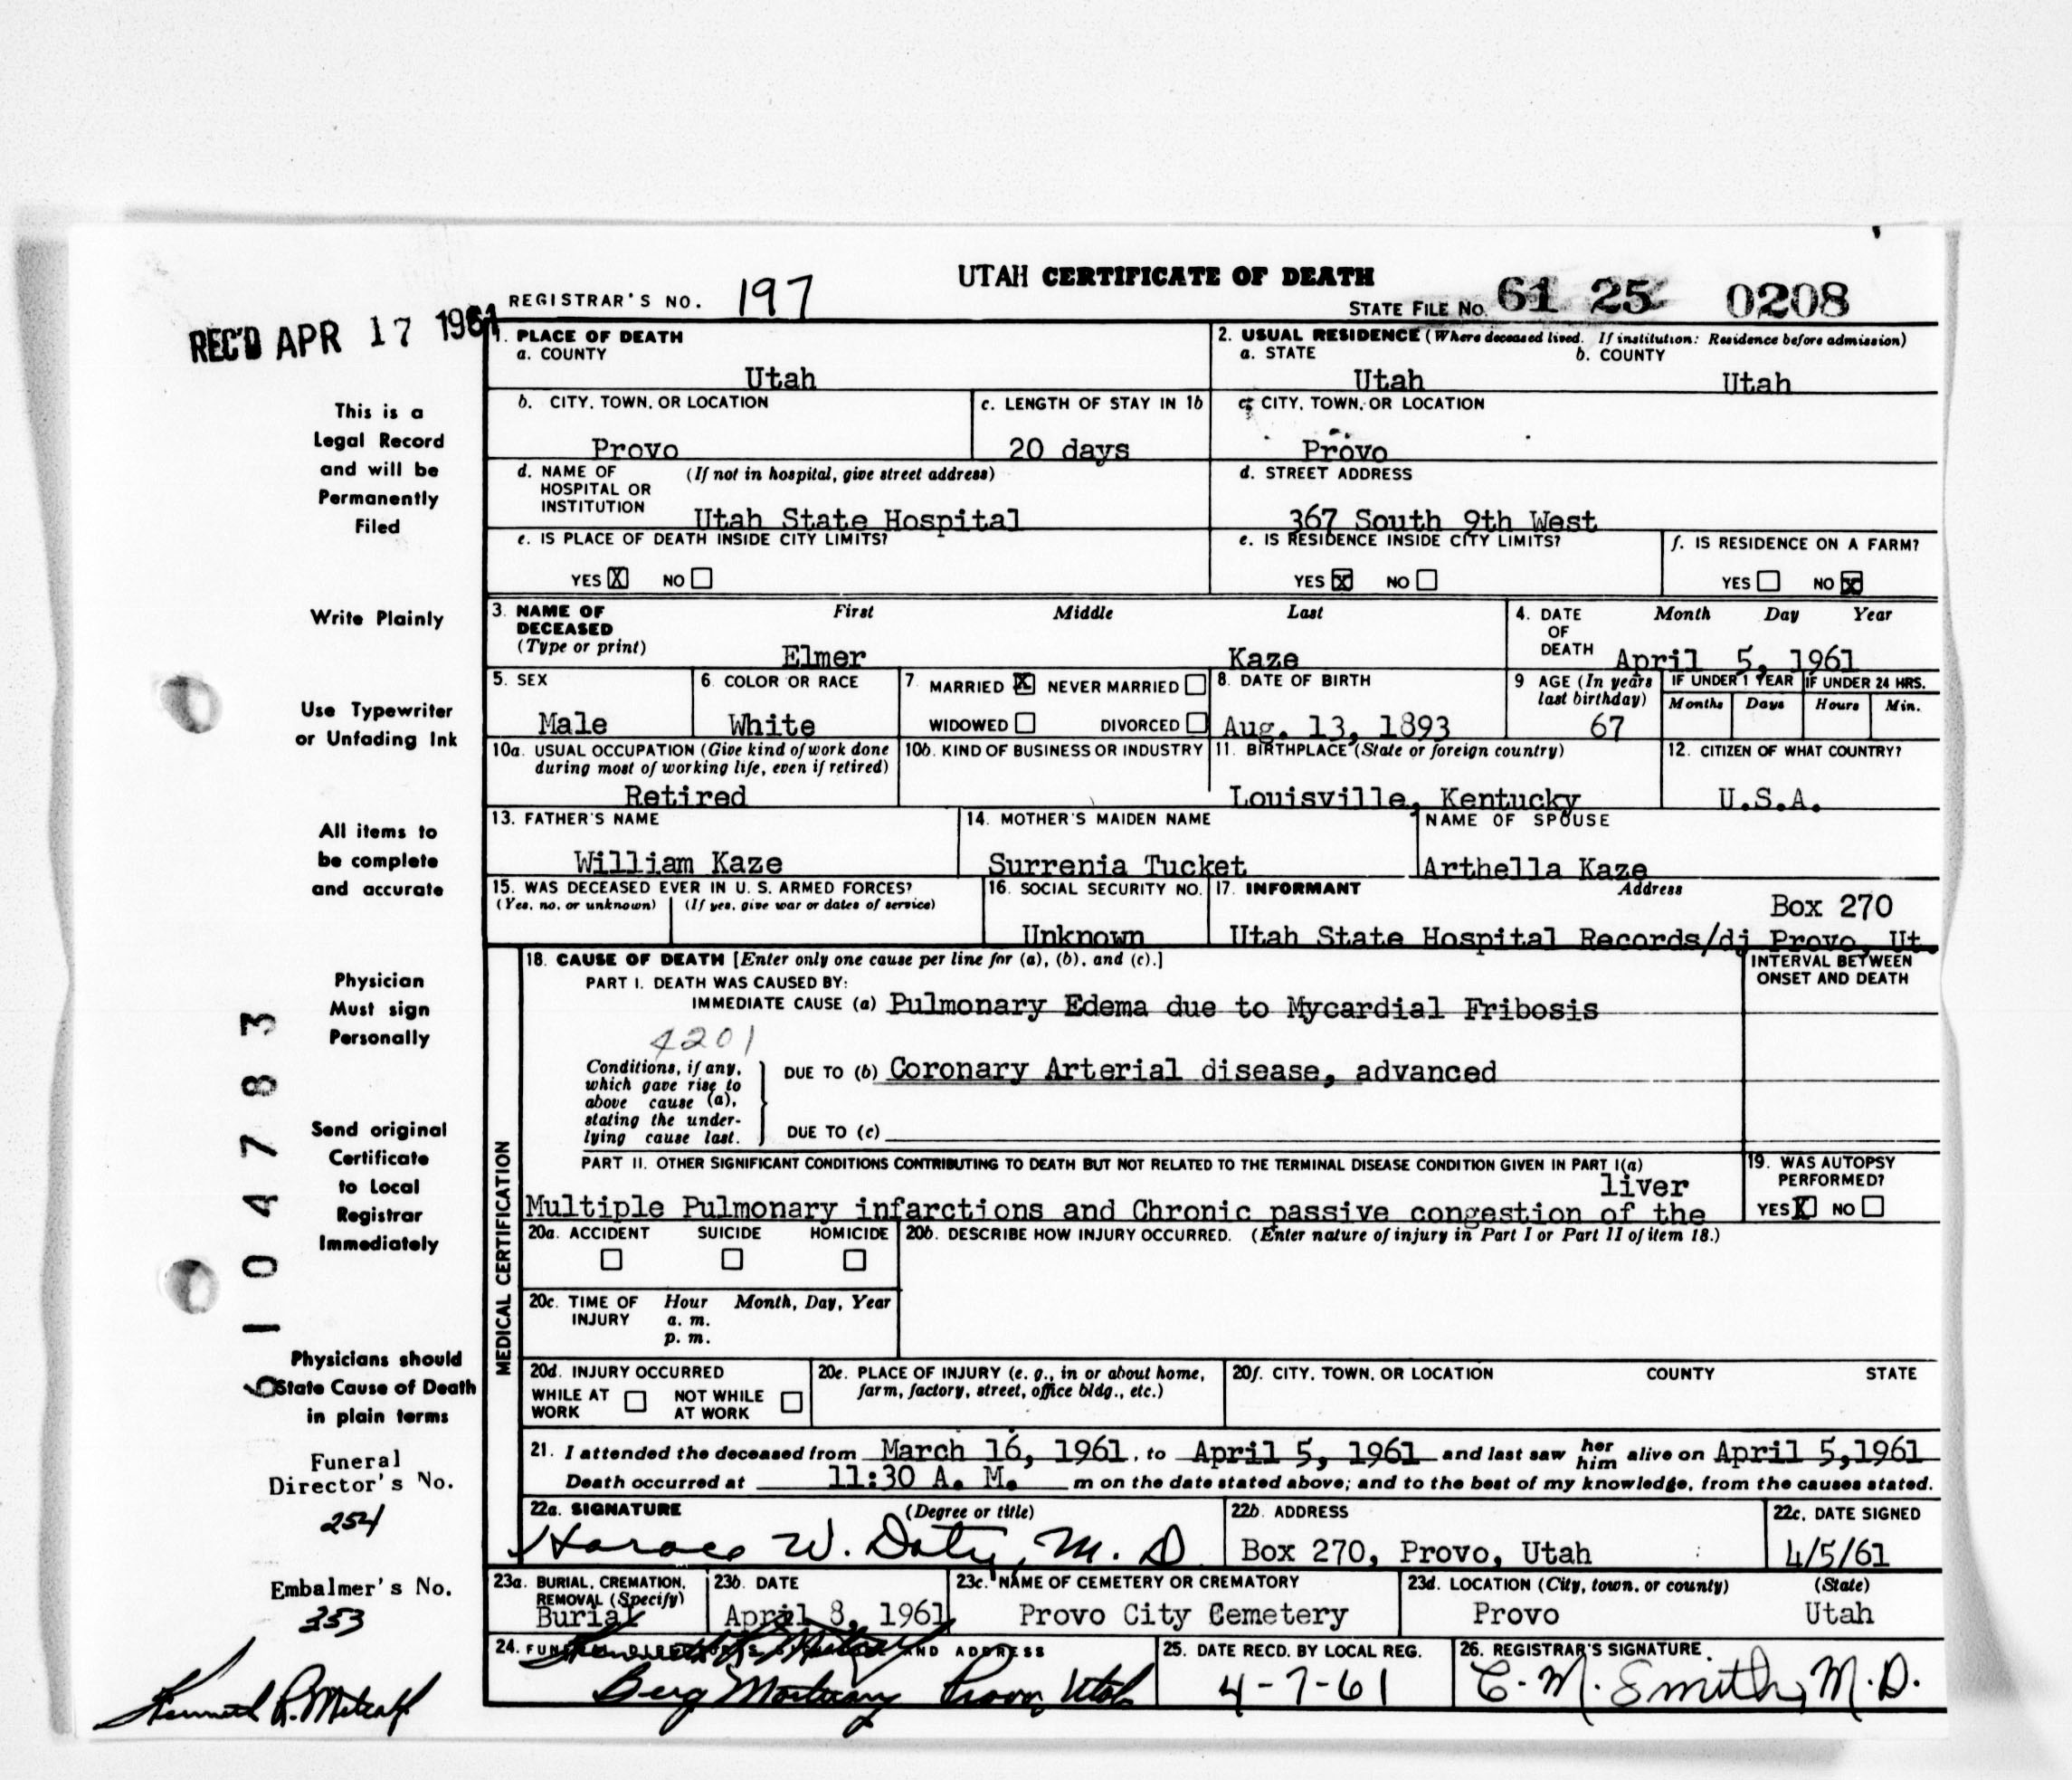 UTAH CERTIFICATE OF DEATH
REGISTRAR'S NO. 197
STATE FILE No. 61 25 0208
REC'D APR 17 1961
This is a
Legal Record
and will be
Permanently
Filed
Write Plainly
Use Typewriter
or Unfading Ink
All items to
be complete
and accurate
Physician
Must sign
Personally
Send original
Certificate
to Local
Registrar
Immediately
Physicians should
State Cause of Death
in plain terms
Funeral
Director's No.
254
Embalmer's No.
253
Kenneth R. Metcalf
6104783
1. PLACE OF DEATH
a. COUNTY
Utah
2. USUAL RESIDENCE (Where deceased lived. If institution: Residence before admission)
a. STATE b. COUNTY
Utah Utah
b. CITY, TOWN, OR LOCATION
Provo
c. LENGTH OF STAY IN 1b
20 days
c. CITY, TOWN, OR LOCATION
Provo
d. NAME OF (If not in hospital, give street address)
HOSPITAL OR
INSTITUTION Utah State Hospital
d. STREET ADDRESS
367 South 9th West
e. IS PLACE OF DEATH INSIDE CITY LIMITS?
YES X NO
e. IS RESIDENCE INSIDE CITY LIMITS?
YES X NO
f. IS RESIDENCE ON A FARM?
YES NO X
3. NAME OF First Middle Last
DECEASED
(Type or print) Elmer Kaze
4. DATE Month Day Year
OF
DEATH April 5, 1961
5. SEX
Male
6. COLOR OR RACE
White
7. MARRIED X NEVER MARRIED
WIDOWED DIVORCED
8. DATE OF BIRTH
Aug. 13, 1893
9 AGE (In years
last birthday)
67
IF UNDER 1 YEAR IF UNDER 24 HRS.
Months Days Hours Min.
10a. USUAL OCCUPATION (Give kind of work done
during most of working life, even if retired)
Retired
10b. KIND OF BUSINESS OR INDUSTRY
11. BIRTHPLACE (State or foreign country)
Louisville, Kentucky
12. CITIZEN OF WHAT COUNTRY?
U.S.A.
13. FATHER'S NAME
William Kaze
14. MOTHER'S MAIDEN NAME
Surrenia Tucket
NAME OF SPOUSE
Arthella Kaze
15. WAS DECEASED EVER IN U. S. ARMED FORCES?
(Yes, no, or unknown) (If yes, give war or dates of service)
16. SOCIAL SECURITY NO.
Unknown
17. INFORMANT Address
Box 270
Utah State Hospital Records/dj Provo, Ut.
MEDICAL CERTIFICATION
18. CAUSE OF DEATH [Enter only one cause per line for (a), (b), and (c).]
INTERVAL BETWEEN
ONSET AND DEATH
PART I. DEATH WAS CAUSED BY:
IMMEDIATE CAUSE (a) Pulmonary Edema due to Mycardial Fribosis
4201
Conditions, if any,
which gave rise to
above cause (a),
stating the under-
lying cause last.
DUE TO (b) Coronary Arterial disease, advanced
DUE TO (c)
PART II. OTHER SIGNIFICANT CONDITIONS CONTRIBUTING TO DEATH BUT NOT RELATED TO THE TERMINAL DISEASE CONDITION GIVEN IN PART I(a)
liver
Multiple Pulmonary infarctions and Chronic passive congestion of the
19. WAS AUTOPSY
PERFORMED?
YES X NO
20a. ACCIDENT SUICIDE HOMICIDE
20b. DESCRIBE HOW INJURY OCCURRED. (Enter nature of injury in Part I or Part II of item 18.)
20c. TIME OF Hour Month, Day, Year
INJURY a. m.
p. m.
20d. INJURY OCCURRED
WHILE AT NOT WHILE
WORK AT WORK
20e. PLACE OF INJURY (e. g., in or about home,
farm, factory, street, office bldg., etc.)
20f. CITY, TOWN, OR LOCATION COUNTY STATE
21. I attended the deceased from March 16, 1961, to April 5, 1961 and last saw her him alive on April 5,1961
Death occurred at 11:30 A. M. m on the date stated above; and to the best of my knowledge, from the causes stated.
22a. SIGNATURE (Degree or title)
Horace W. Doty, M. D
22b. ADDRESS
Box 270, Provo, Utah
22c. DATE SIGNED
4/5/61
23a. BURIAL, CREMATION,
REMOVAL (Specify)
Burial
23b. DATE
April 8, 1961
23c. NAME OF CEMETERY OR CREMATORY
Provo City Cemetery
23d. LOCATION (City, town, or county) (State)
Provo Utah
24. FUNERAL DIRECTOR'S SIGNATURE AND ADDRESS
Kenneth R. Metcalf
Berg Mortuary Provo Utah
25. DATE RECD. BY LOCAL REG.
4-7-61
26. REGISTRAR'S SIGNATURE
C. M. Smith, M.D.